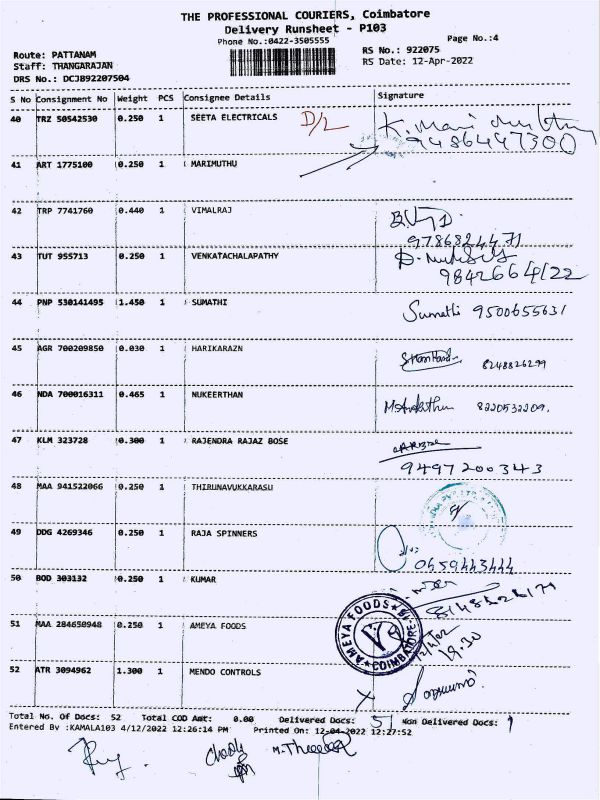 THE PROFESSIONAL COURIERS, Coimbatore
Delivery Runsheet - P103
Phone No.:0422-3505555
Page No.:4
Route: PATTANAM
RS No.: 922075
Staff: THANGARAJAN
RS Date: 12-Apr-2022
DRS No.: DCJB92207504
S No Consignment No Weight PCS Consignee Details Signature
40 TRZ 50542530 0.250 1 SEETA ELECTRICALS D/L
9486447300
41 ART 1775100 0.250 1 MARIMUTHU
42 TRP 7741760 0.440 1 VIMALRAJ
9786824471
43 TUT 955713 0.250 1 VENKATACHALAPATHY
9842664122
44 PNP 530141495 1.450 1 SUMATHI Sumathi 9500655631
45 AGR 700209850 0.030 1 HARIKARAZN 8248826299
46 NDA 700016311 0.465 1 NUKEERTHAN 8220532209.
47 KLM 323728 0.300 1 RAJENDRA RAJAZ BOSE
9497200343
48 MAA 941522066 0.250 1 THIRUNAVUKKARASU
49 DDG 4269346 0.250 1 RAJA SPINNERS
50 BOD 303132 0.250 1 KUMAR
51 MAA 284650948 0.250 1 AMEYA FOODS
AMEYA FOODS COIMBATORE
19.30
52 ATR 3094962 1.300 1 MENDO CONTROLS
Total No. Of Docs: 52 Total COD Amt: 0.00 Delivered Docs: 51 Non Delivered Docs: 1
Entered By :KAMALA103 4/12/2022 12:26:14 PM Printed On: 12-04-2022 12:27:52